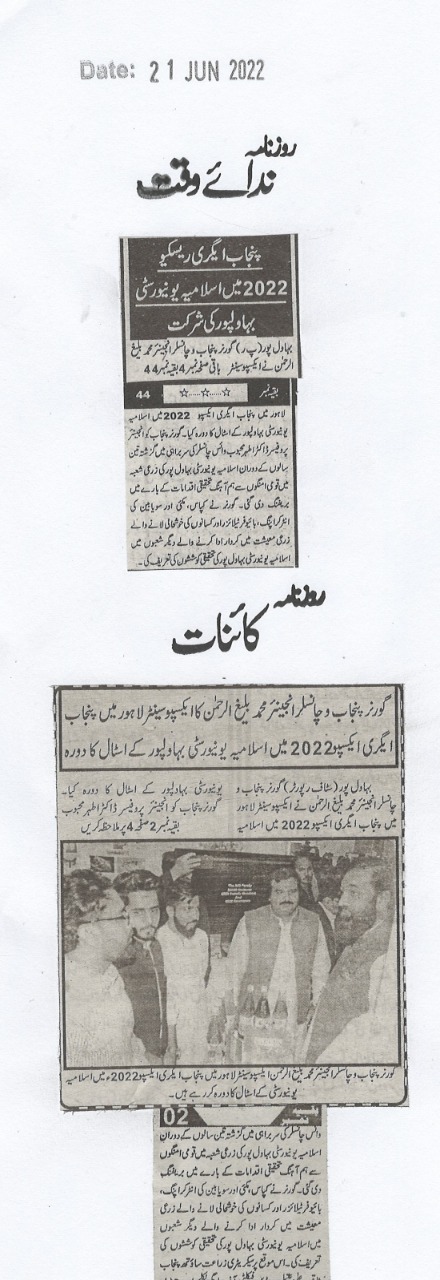 Date: 21 JUN 2022
روزنامہ
ندائے وقت
پنجاب ایگری ریسکیو
2022 میں اسلامیہ یونیورسٹی
بہاولپور کی شرکت
بہاول پور (پ ر) گورنر پنجاب و چانسلر انجینئر محمد بلیغ
الرحمٰن نے ایکسپو سینٹر باقی صفحہ نمبر 4 بقیہ نمبر 44
بقیہ نمبر 44
لاہور میں پنجاب ایگری ایکسپو 2022 میں اسلامیہ
یونیورسٹی بہاولپور کے اسٹال کا دورہ کیا۔ گورنر پنجاب کو انجینئر
پروفیسر ڈاکٹر اطہر محبوب وائس چانسلر کی سربراہی میں گزشتہ تین
سالوں کے دوران اسلامیہ یونیورسٹی بہاول پور کی زرعی شعبہ
میں قومی امنگوں سے ہم آہنگ تحقیقی اقدامات کے بارے میں
بریفنگ دی گئی۔ گورنر نے کپاس، مکئی اور سویابین کی
انٹرکراپنگ، بائیو فرٹیلائزر اور کسانوں کی خوشحالی لانے والے
زرعی معیشت میں کردار ادا کرنے والے دیگر شعبوں میں
اسلامیہ یونیورسٹی بہاول پور کی تحقیقی کوششوں کی تعریف کی۔
روزنامہ
کائنات
گورنر پنجاب و چانسلر انجینئر محمد بلیغ الرحمٰن کا ایکسپو سینٹر لاہور میں پنجاب
ایگری ایکسپو 2022 میں اسلامیہ یونیورسٹی بہاولپور کے اسٹال کا دورہ
بہاول پور (سٹاف رپورٹر) گورنر پنجاب و
چانسلر انجینئر محمد بلیغ الرحمٰن نے ایکسپو سینٹر لاہور
میں پنجاب ایگری ایکسپو 2022 میں اسلامیہ
یونیورسٹی بہاولپور کے اسٹال کا دورہ کیا۔
گورنر پنجاب کو انجینئر پروفیسر ڈاکٹر اطہر محبوب
بقیہ نمبر 2 صفحہ 4 پر ملاحظہ کریں
گورنر پنجاب و چانسلر انجینئر محمد بلیغ الرحمٰن ایکسپو سینٹر لاہور میں پنجاب ایگری ایکسپو 2022ء میں اسلامیہ
یونیورسٹی کے اسٹال کا دورہ کر رہے ہیں۔
بقیہ 02
وائس چانسلر کی سربراہی میں گزشتہ تین سالوں کے دوران
اسلامیہ یونیورسٹی بہاول پور کی زرعی شعبہ میں قومی امنگوں
سے ہم آہنگ تحقیقی اقدامات کے بارے میں بریفنگ
دی گئی۔ گورنر نے کپاس، مکئی اور سویابین کی انٹرکراپنگ،
بائیو فرٹیلائزر اور کسانوں کی خوشحالی لانے والے زرعی
معیشت میں کردار ادا کرنے والے دیگر شعبوں میں
اسلامیہ یونیورسٹی بہاول پور کی تحقیقی کوششوں کی
تعریف کی۔ اس موقع پر سیکریٹری زراعت ساؤتھ پنجاب